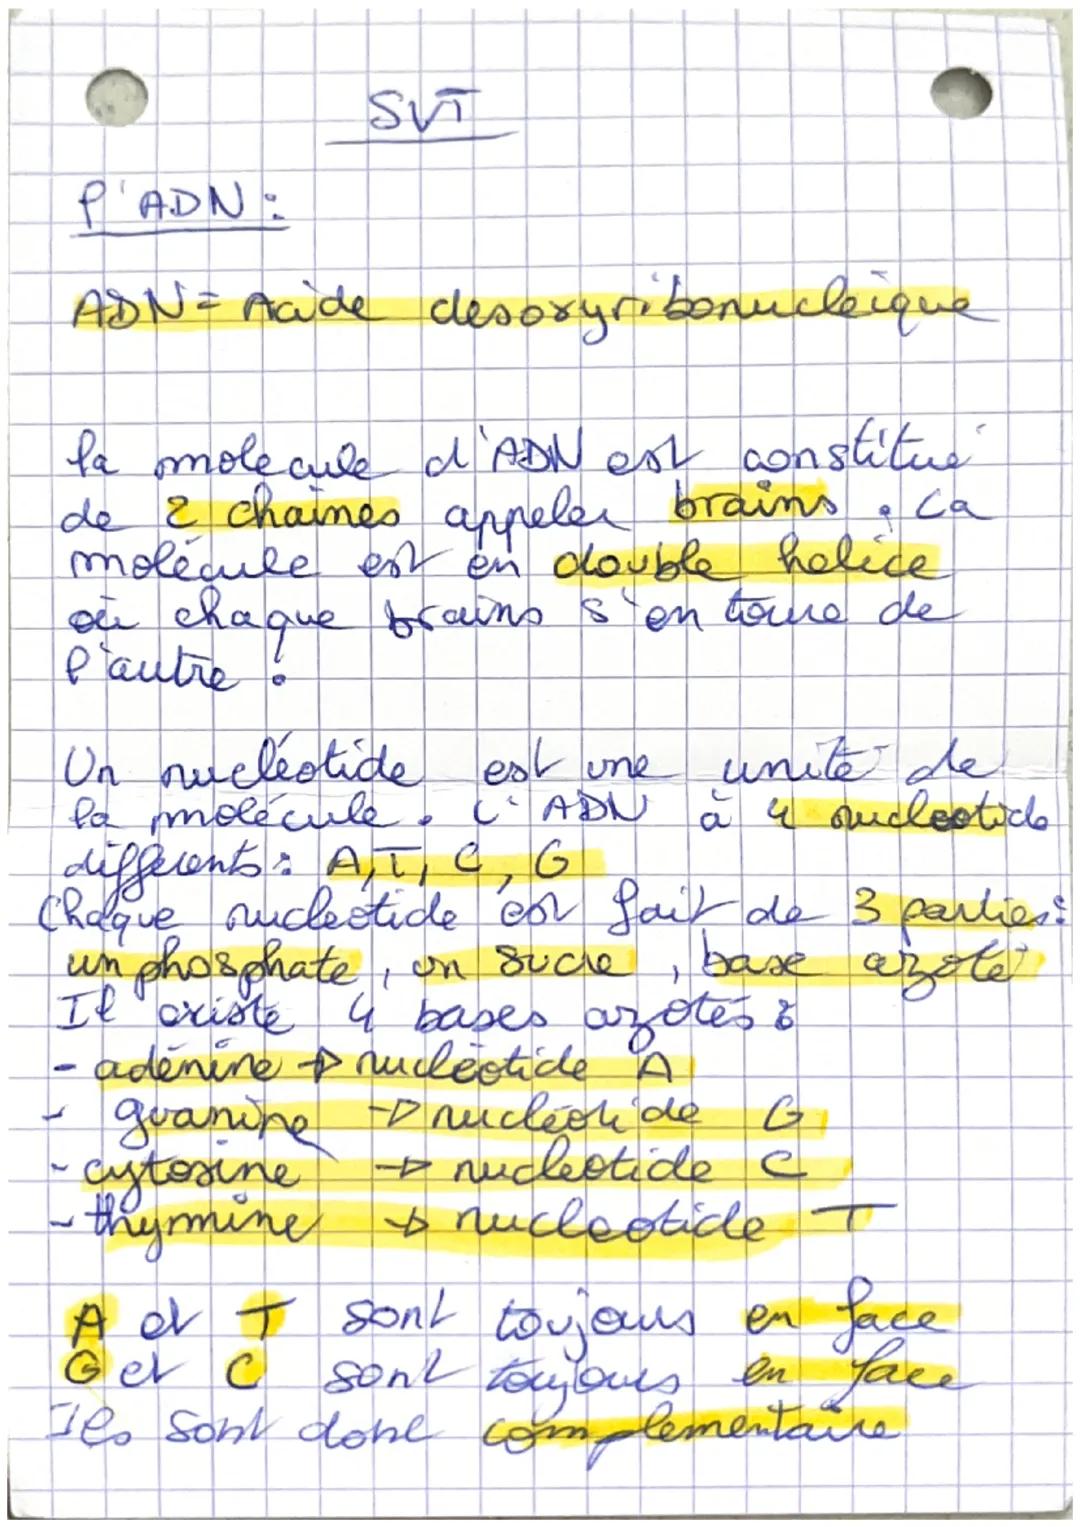 SVT
l'ADN :
ADN = Acide desoxyribonucléique
la molecule d'ADN est constitué
de 2 chaines appeler brains. La
molécule est en double helice
où chaque brains s'entoure de
l'autre.
Un nucléotide est une unité de
la molécule. L'ADN à 4 nucleotide
différents : A, T, C, G
Chaque nucleotide est fait de 3 parties :
un phosphate, un sucre, base azoté
Il existe 4 bases azotés :
- adénine → nucléotide A
- guanine → nucléotide G
- cytosine → nucleotide C
- thymine → nucleotide T
A et T sont toujours en face
G et C sont toujours en face
Ils sont donc complementaire